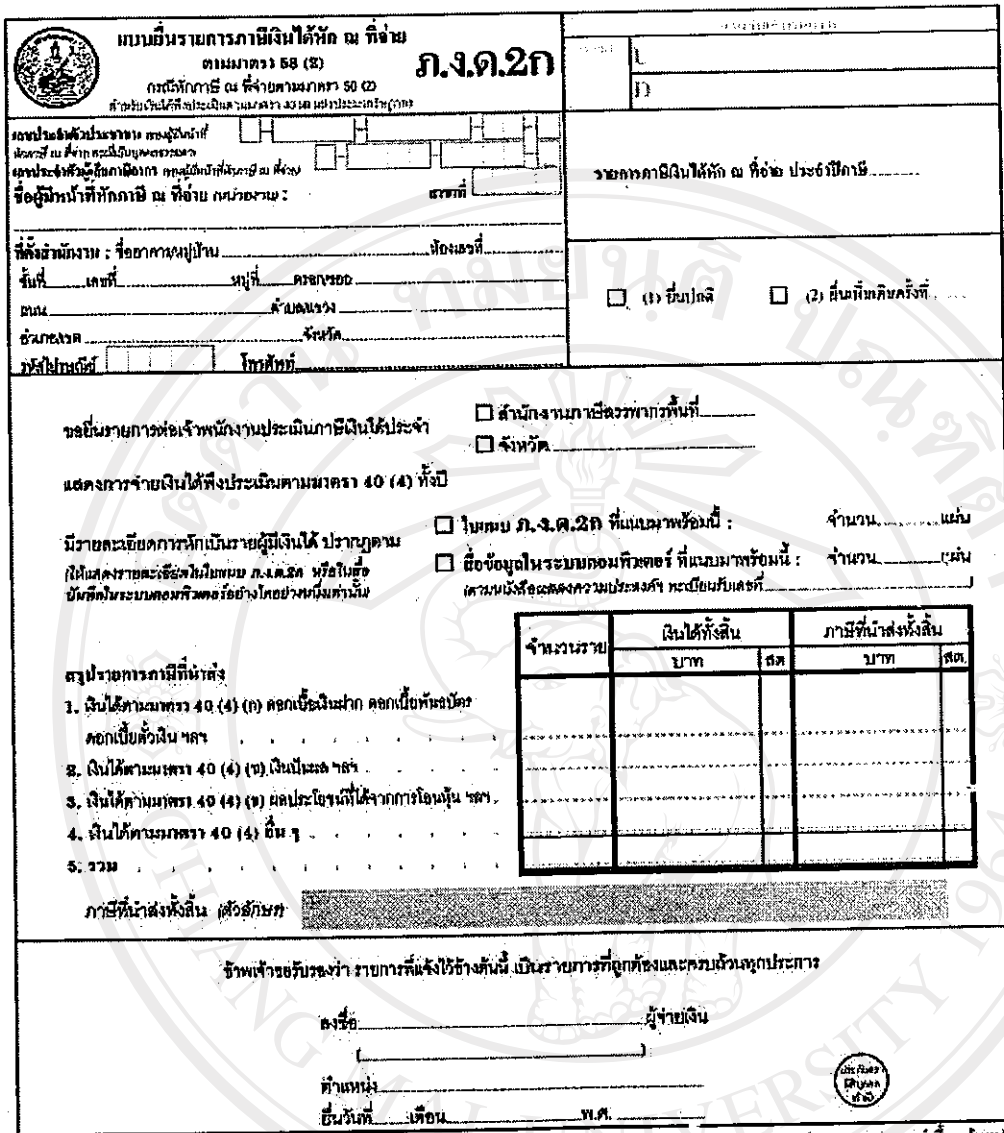 แบบยื่นรายการภาษีเงินได้หัก ณ ที่จ่าย
ตามมาตรา 58 (2)
ภ.ง.ด.2ก
กรณีหักภาษี ณ ที่จ่ายตามมาตรา 50 (2)
เลขประจำตัวประชาชน
เลขประจำตัวผู้เสียภาษีอากร
ชื่อผู้มีหน้าที่หักภาษี ณ ที่จ่าย (หน่วยงาน) :
สาขาที่
ที่ตั้งสำนักงาน : ชื่ออาคาร/หมู่บ้าน ห้องเลขที่
ชั้นที่ เลขที่ หมู่ที่ ตรอก/ซอย
ถนน ตำบล/แขวง
อำเภอ/เขต จังหวัด
รหัสไปรษณีย์ โทรศัพท์
รายการภาษีเงินได้หัก ณ ที่จ่าย ประจำปีภาษี
(1) ยื่นปกติ (2) ยื่นเพิ่มเติมครั้งที่
ขอยื่นรายการต่อเจ้าพนักงานประเมินภาษีเงินได้ประจำ
สำนักงานภาษีสรรพากรพื้นที่
จังหวัด
แสดงการจ่ายเงินได้พึงประเมินตามมาตรา 40 (4) ทั้งปี
มีรายละเอียดการหักเป็นรายผู้มีเงินได้ ปรากฏตาม
(ให้แสดงรายละเอียดในใบแนบ ภ.ง.ด.2ก หรือในสื่อ
บันทึกในระบบคอมพิวเตอร์อย่างใดอย่างหนึ่งเท่านั้น)
ใบแนบ ภ.ง.ด.2ก ที่แนบมาพร้อมนี้ : จำนวน แผ่น
สื่อข้อมูลในระบบคอมพิวเตอร์ ที่แนบมาพร้อมนี้ : จำนวน แผ่น
(ตามหนังสือแสดงความประสงค์ฯ ทะเบียนรับเลขที่ )
จำนวนราย เงินได้ทั้งสิ้น ภาษีที่นำส่งทั้งสิ้น
บาท สต. บาท สต.
สรุปรายการภาษีที่นำส่ง
1. เงินได้ตามมาตรา 40 (4) (ก) ดอกเบี้ยเงินฝาก ดอกเบี้ยพันธบัตร
ดอกเบี้ยตั๋วเงิน ฯลฯ
2. เงินได้ตามมาตรา 40 (4) (ข) เงินปันผล ฯลฯ
3. เงินได้ตามมาตรา 40 (4) (ช) ผลประโยชน์ที่ได้จากการโอนหุ้น ฯลฯ
4. เงินได้ตามมาตรา 40 (4) อื่น ๆ
5. รวม
ภาษีที่นำส่งทั้งสิ้น (ตัวอักษร)
ข้าพเจ้าขอรับรองว่า รายการที่แจ้งไว้ข้างต้นนี้ เป็นรายการที่ถูกต้องและครบถ้วนทุกประการ
ลงชื่อ ผู้จ่ายเงิน
( )
ตำแหน่ง
ยื่นวันที่ เดือน พ.ศ.